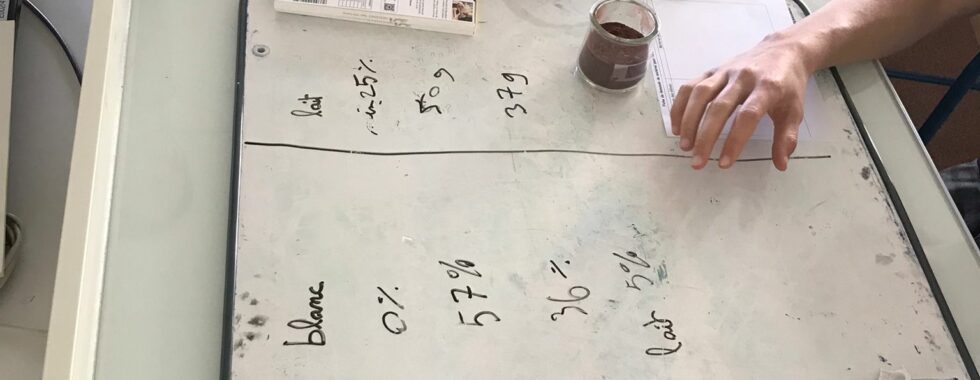 blanc
0%
57%
36%
lait 5%
lait
25%
50g
37g